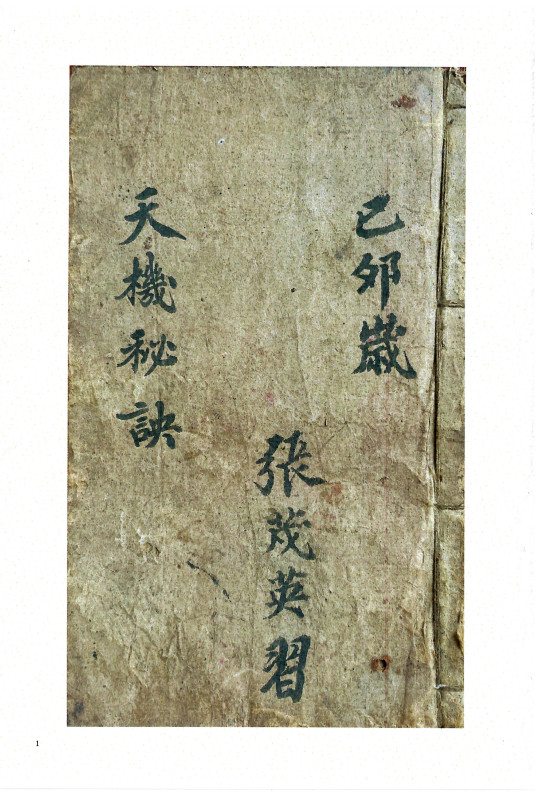 己卯歲
張茂英習
天機秘訣
1